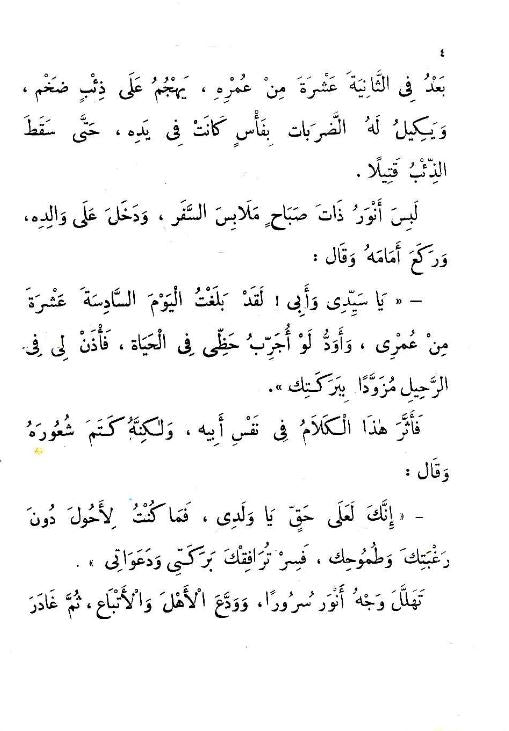 ٤
بَعْدُ فِى الثَّانِيَةَ عَشْرَةَ مِنْ عُمْرِهِ ، يَهْجُمُ عَلَى ذِئْبٍ ضَخْمٍ ،
وَيَكِيلُ لَهُ الضَّرَبَات بِفَأْسٍ كَانَتْ فِى يَدِه ، حَتَّى سَقَطَ
الذِّئْبُ قَتِيلًا .
لَبِسَ أَنْوَرُ ذَاتَ صَبَاحٍ مَلَابِسَ السَّفَر ، وَدَخَلَ عَلَى وَالِدِه،
وَرَكَعَ أَمَامَهُ وَقَال :
– « يَا سَيِّدِى وَأَبِى ! لَقَدْ بَلَغْتُ الْيَوْمَ السَّادِسَةَ عَشْرَةَ
مِنْ عُمْرِى ، وَأَوَدُّ لَوْ أُجَرِّبُ حَظِّى فِى الْحَيَاة ، فَأْذَنْ لِى فِى
الرَّحِيلِ مُزَوَّدًا بِبَرَكَتِك ».
فَأَثَّرَ هٰذَا الْكَلَامُ فِى نَفْسِ أَبِيه ، وَلٰكِنَّهُ كَتَمَ شُعُورَهُ
وَقَال :
– « إِنَّكَ لَعَلَى حَقٍّ يَا وَلَدِى ، فَمَا كُنْتُ لِأَحُولَ دُونَ
رَغْبَتِكَ وَطُمُوحِك ، فَسِرْ تُرَافِقْكَ بَرَكَتِى وَدَعَوَاتِى » .
تَهَلَّلَ وَجْهُ أَنْوَر سُرُورًا، وَوَدَّعَ الْأَهْلَ وَالْأَتْبَاع ، ثُمَّ غَادَرَ